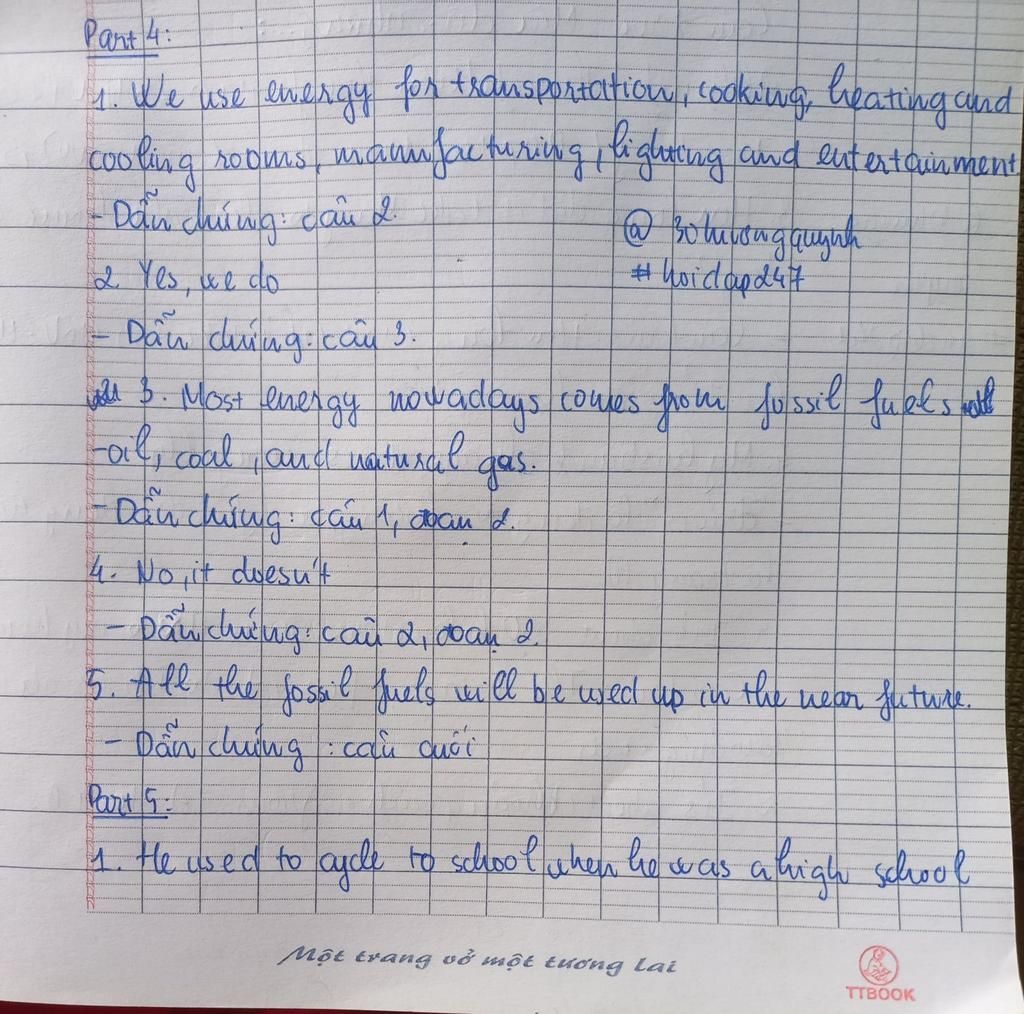 Part 4:
1. We use energy for transportation, cooking, heating and
cooling rooms, manufacturing, lighting and entertainment
- Dẫn chứng: câu 2.
@ 3011vongquynh
2 Yes, we do
# hoidap247
- Dẫn chứng: câu 3.
3. Most energy nowadays comes from fossil fuels
-oil, coal, and natural gas.
- Dẫn chứng: câu 1, đoạn 2.
4. No, it doesn't
- Dẫn chứng: câu 2, đoạn 2
5. All the fossil fuels will be used up in the near future.
- Dẫn chứng: câu cuối
Part 5:
1. He used to cycle to school when he was a high school
Một trang vở một tương lai
TTBOOK